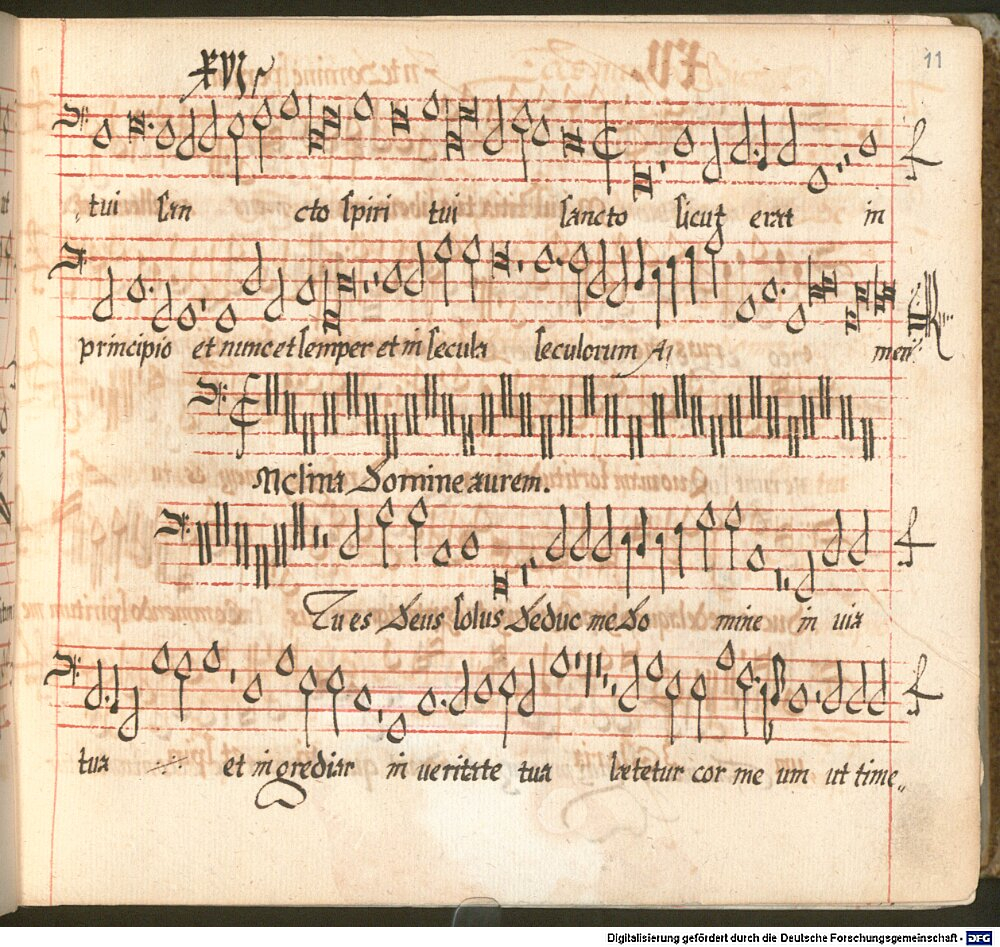 XVI
11
tui san cto spiri tui sancto sicut erat in
principio et nunc et semper et in secula seculorum A men.
Nclina Domine aurem.
Tu es Deus solus Deduc me Do mine in via
tua et ingrediar in veritate tua lætetur cor me um ut time„
Digitalisierung gefördert durch die Deutsche Forschungsgemeinschaft - DFG